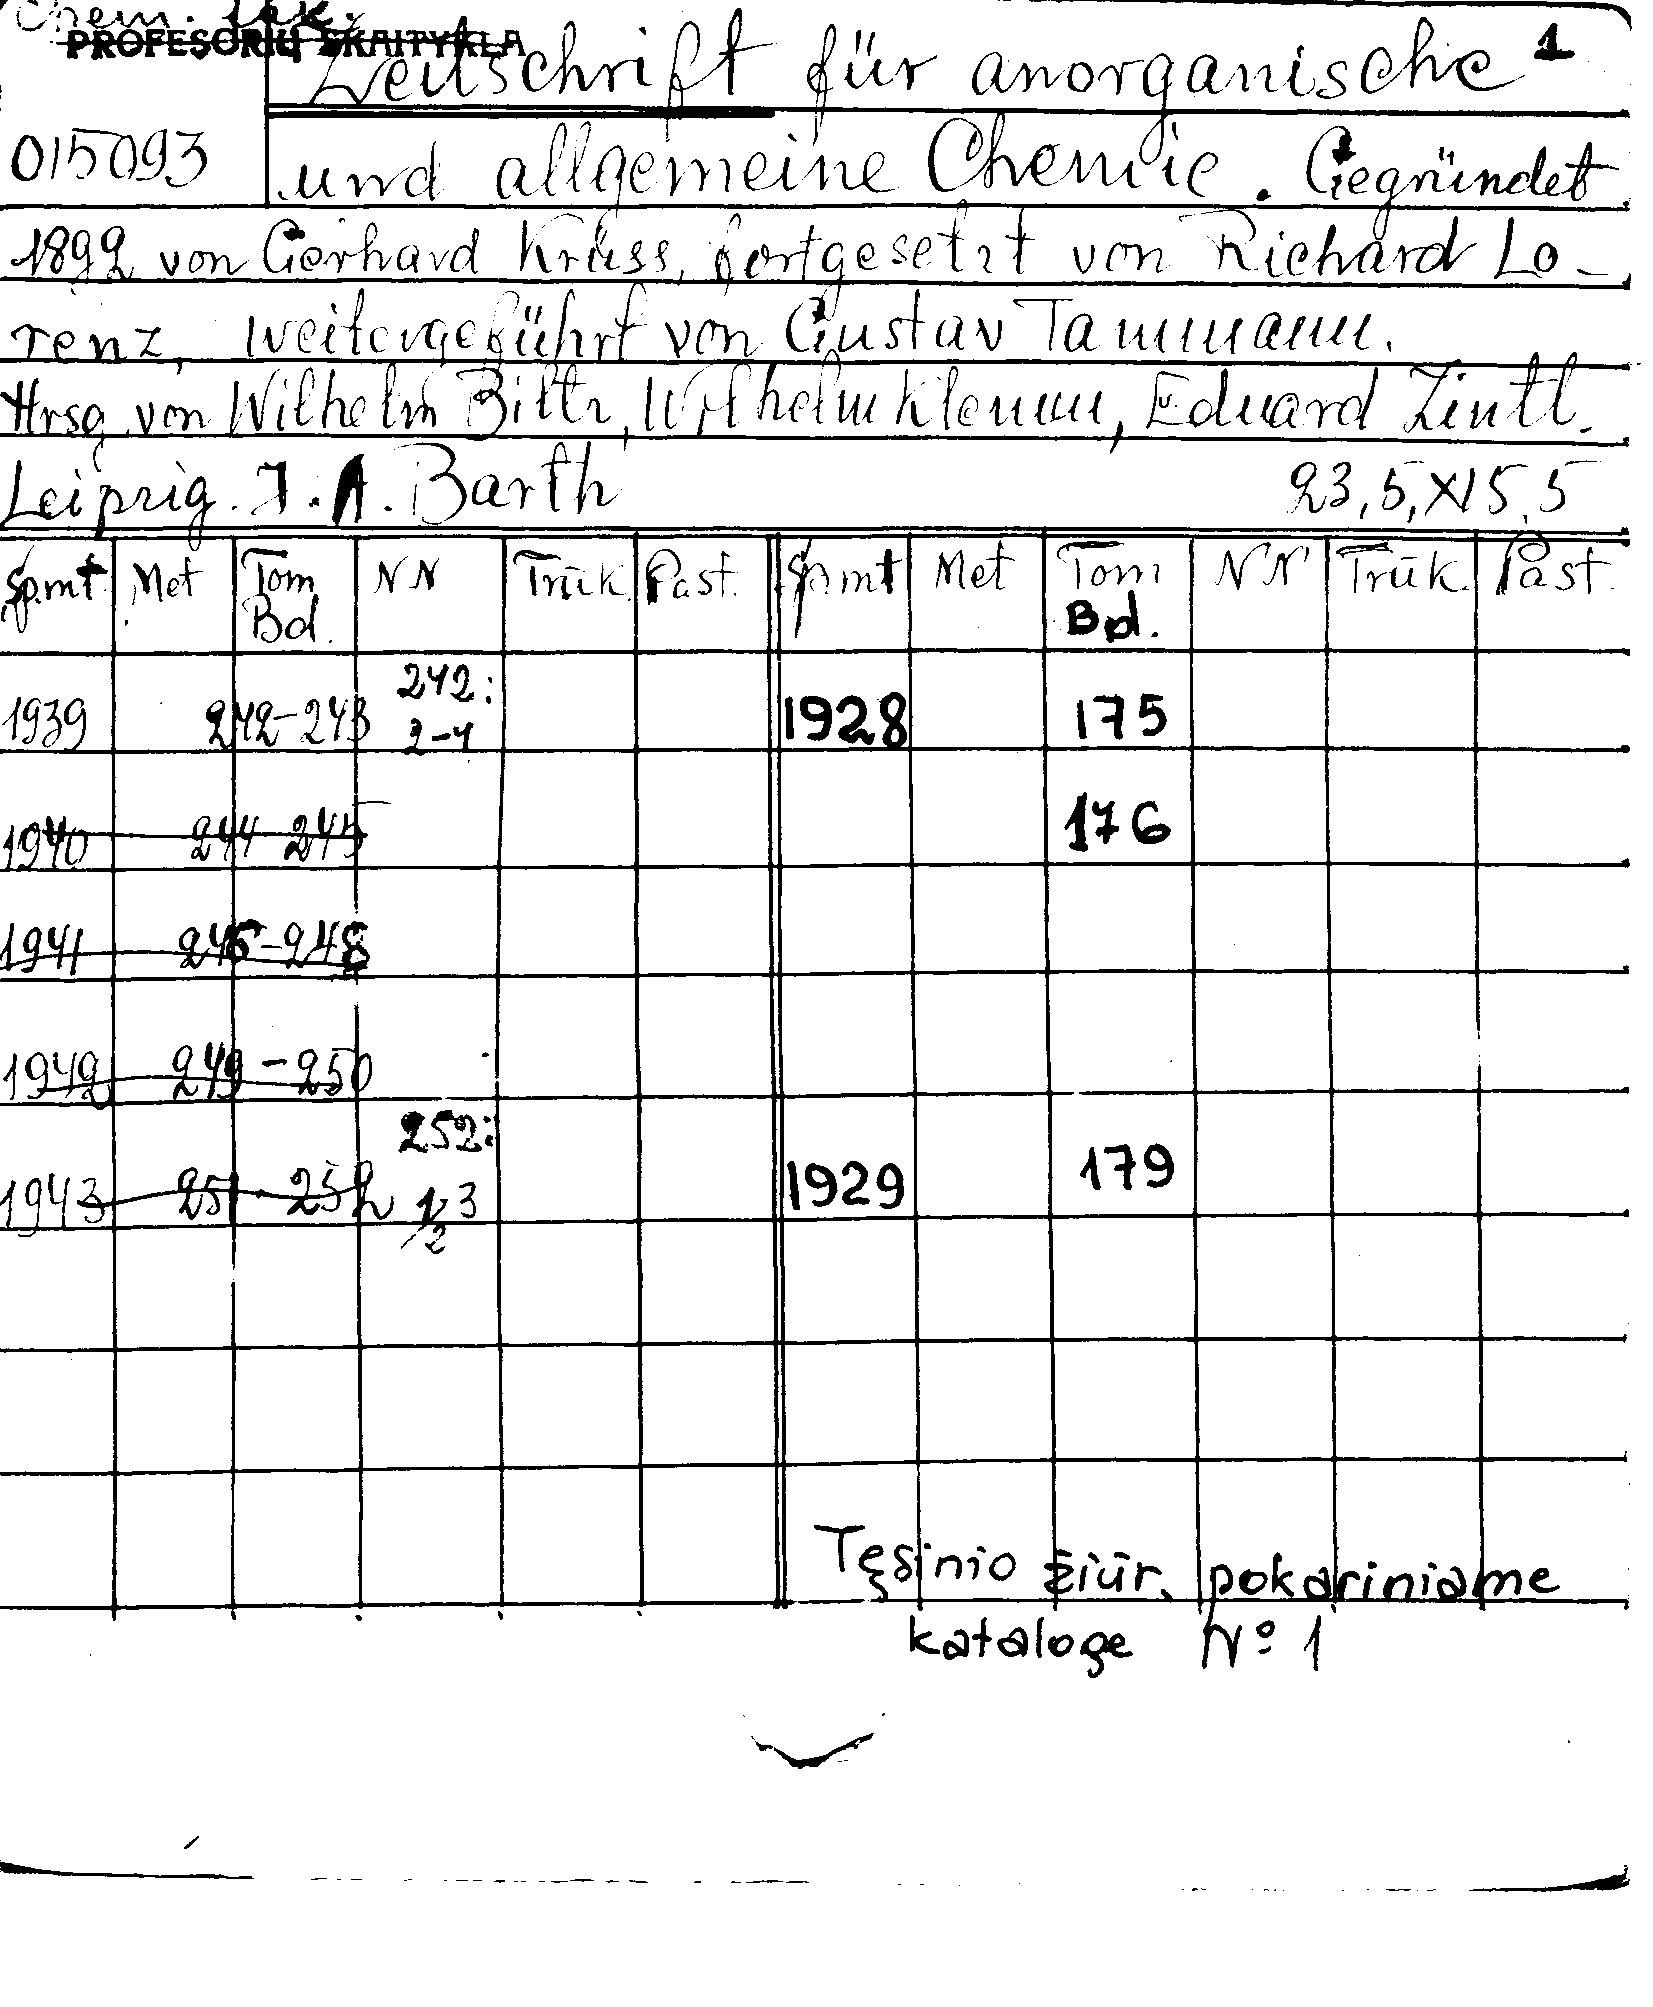 Chem. fak.
PROFESORIŲ SKAITYKLA
Zeitschrift für anorganische 1
015093 und allgemeine Chemie. Gegründet
1892 von Gerhard Krüss, fortgesetzt von Richard Lo-
renz, weitergeführt von Gustav Tammann.
Hrsg. von Wilhelm Biltz, Wilhelm Klemm, Eduard Zintl.
Leipzig. J. A. Barth 23,5,x15,5
Sp.mt Met Tom NN Trūk. Past. Sp.mt Met Tom NN Trūk. Past.
Bd. Bd.
242:
1939 242-243 2-4 1928 175
1940 244-245 176
1941 246-248
1942 249-250
252:
1943 251-252 1/2 3 1929 179
Tęsinio žiūr. pokariniame
kataloge № 1